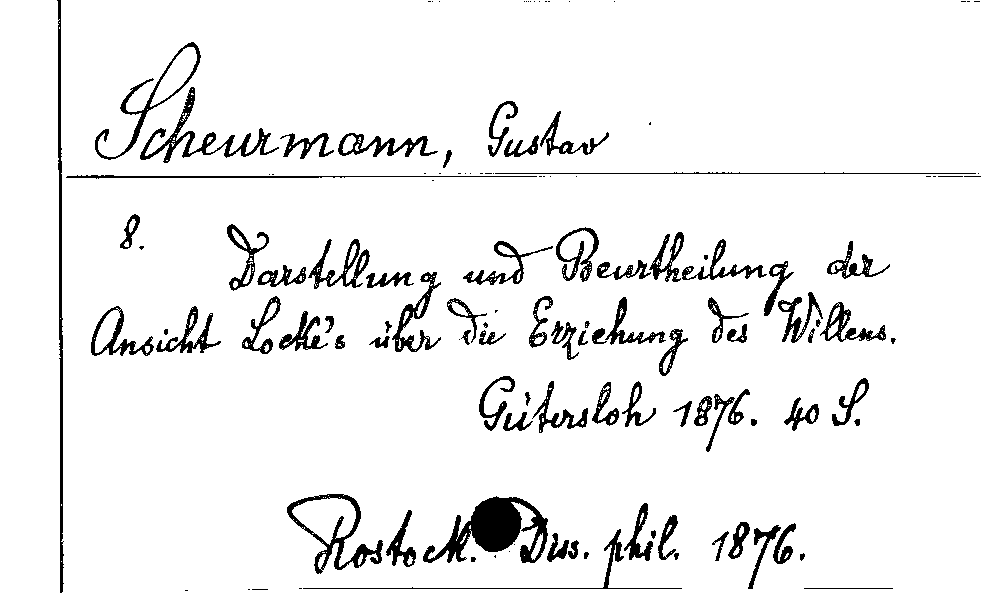 Scheurmann, Gustav
8.
Darstellung und Beurtheilung der
Ansicht Locke's über die Erziehung des Willens.
Gütersloh 1876. 40 S.
Rostock. Diss. phil. 1876.